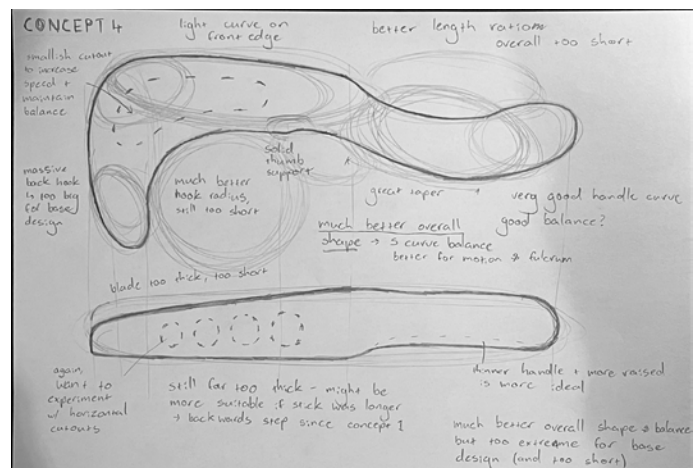 CONCEPT 4
light curve on
front edge
better length ratio
overall too short
smallish cutout
to increase
speed +
maintain
balance
solid
thumb
support
massive
back hook
too big
for base
design
much better
hook radius,
still too short
great taper →
very good handle curve
good balance?
much better overall
shape → S curve balance
better for motion & fulcrum
blade too thick, too short
again,
want to
experiment
w/ horizontal
cutouts
still far too thick - might be
more suitable if stick was longer
→ backwards step since concept 1
thinner handle + more raised
is more ideal
much better overall shape & balance
but too extreme for base
design (and too short)